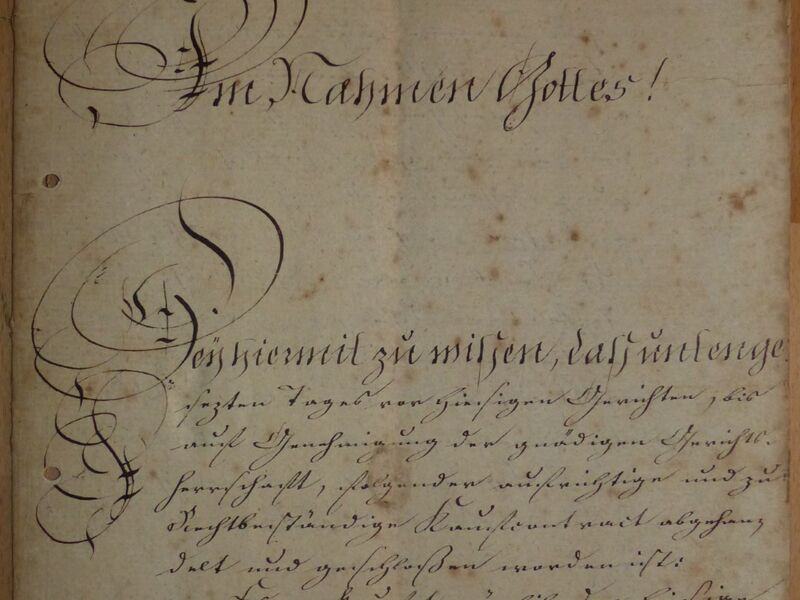 Im Nahmen Gottes!
Sey hiermit zu wißen, daß untenge
sezten Tages vor hiesigen Gerichten, bis
auf Genehmigung der gnädigen Gerichts-
herrschafft, folgender aufrichtige und zu
Rechtbeständige Kaufcontract abgehan-
delt und geschloßen worden ist: